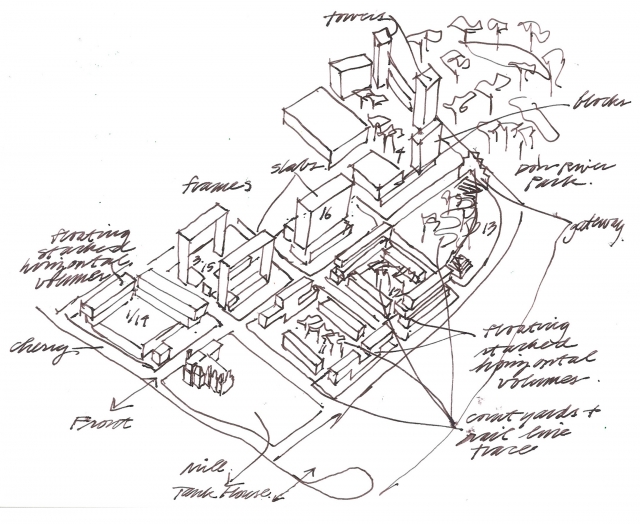 towers
blocks
6
4
slabs
Don River
Park.
frames
16
gateway
13
floating
stacked
horizontal
volumes
3.15
12
1/14
Cherry
floating
stacked
horizontal
volumes.
Front
courtyards +
rail line
traces
Mill
Tank House.